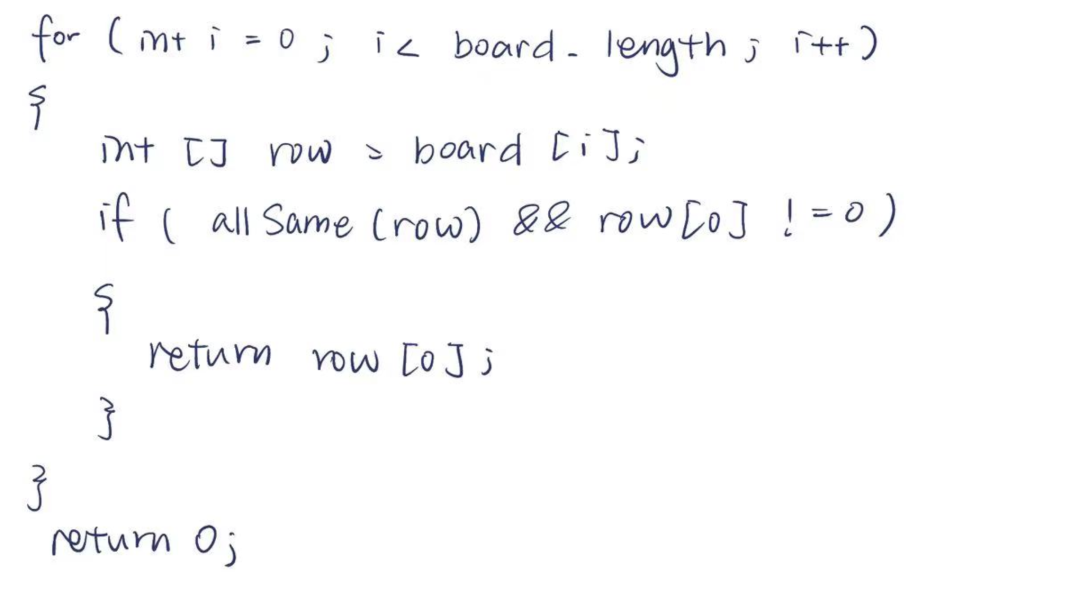 for ( int i = 0 ; i < board - length ; i++ )
{
int [] row = board [i] ;
if ( allSame (row) && row[0] != 0 )
{
return row [0] ;
}
}
return 0;